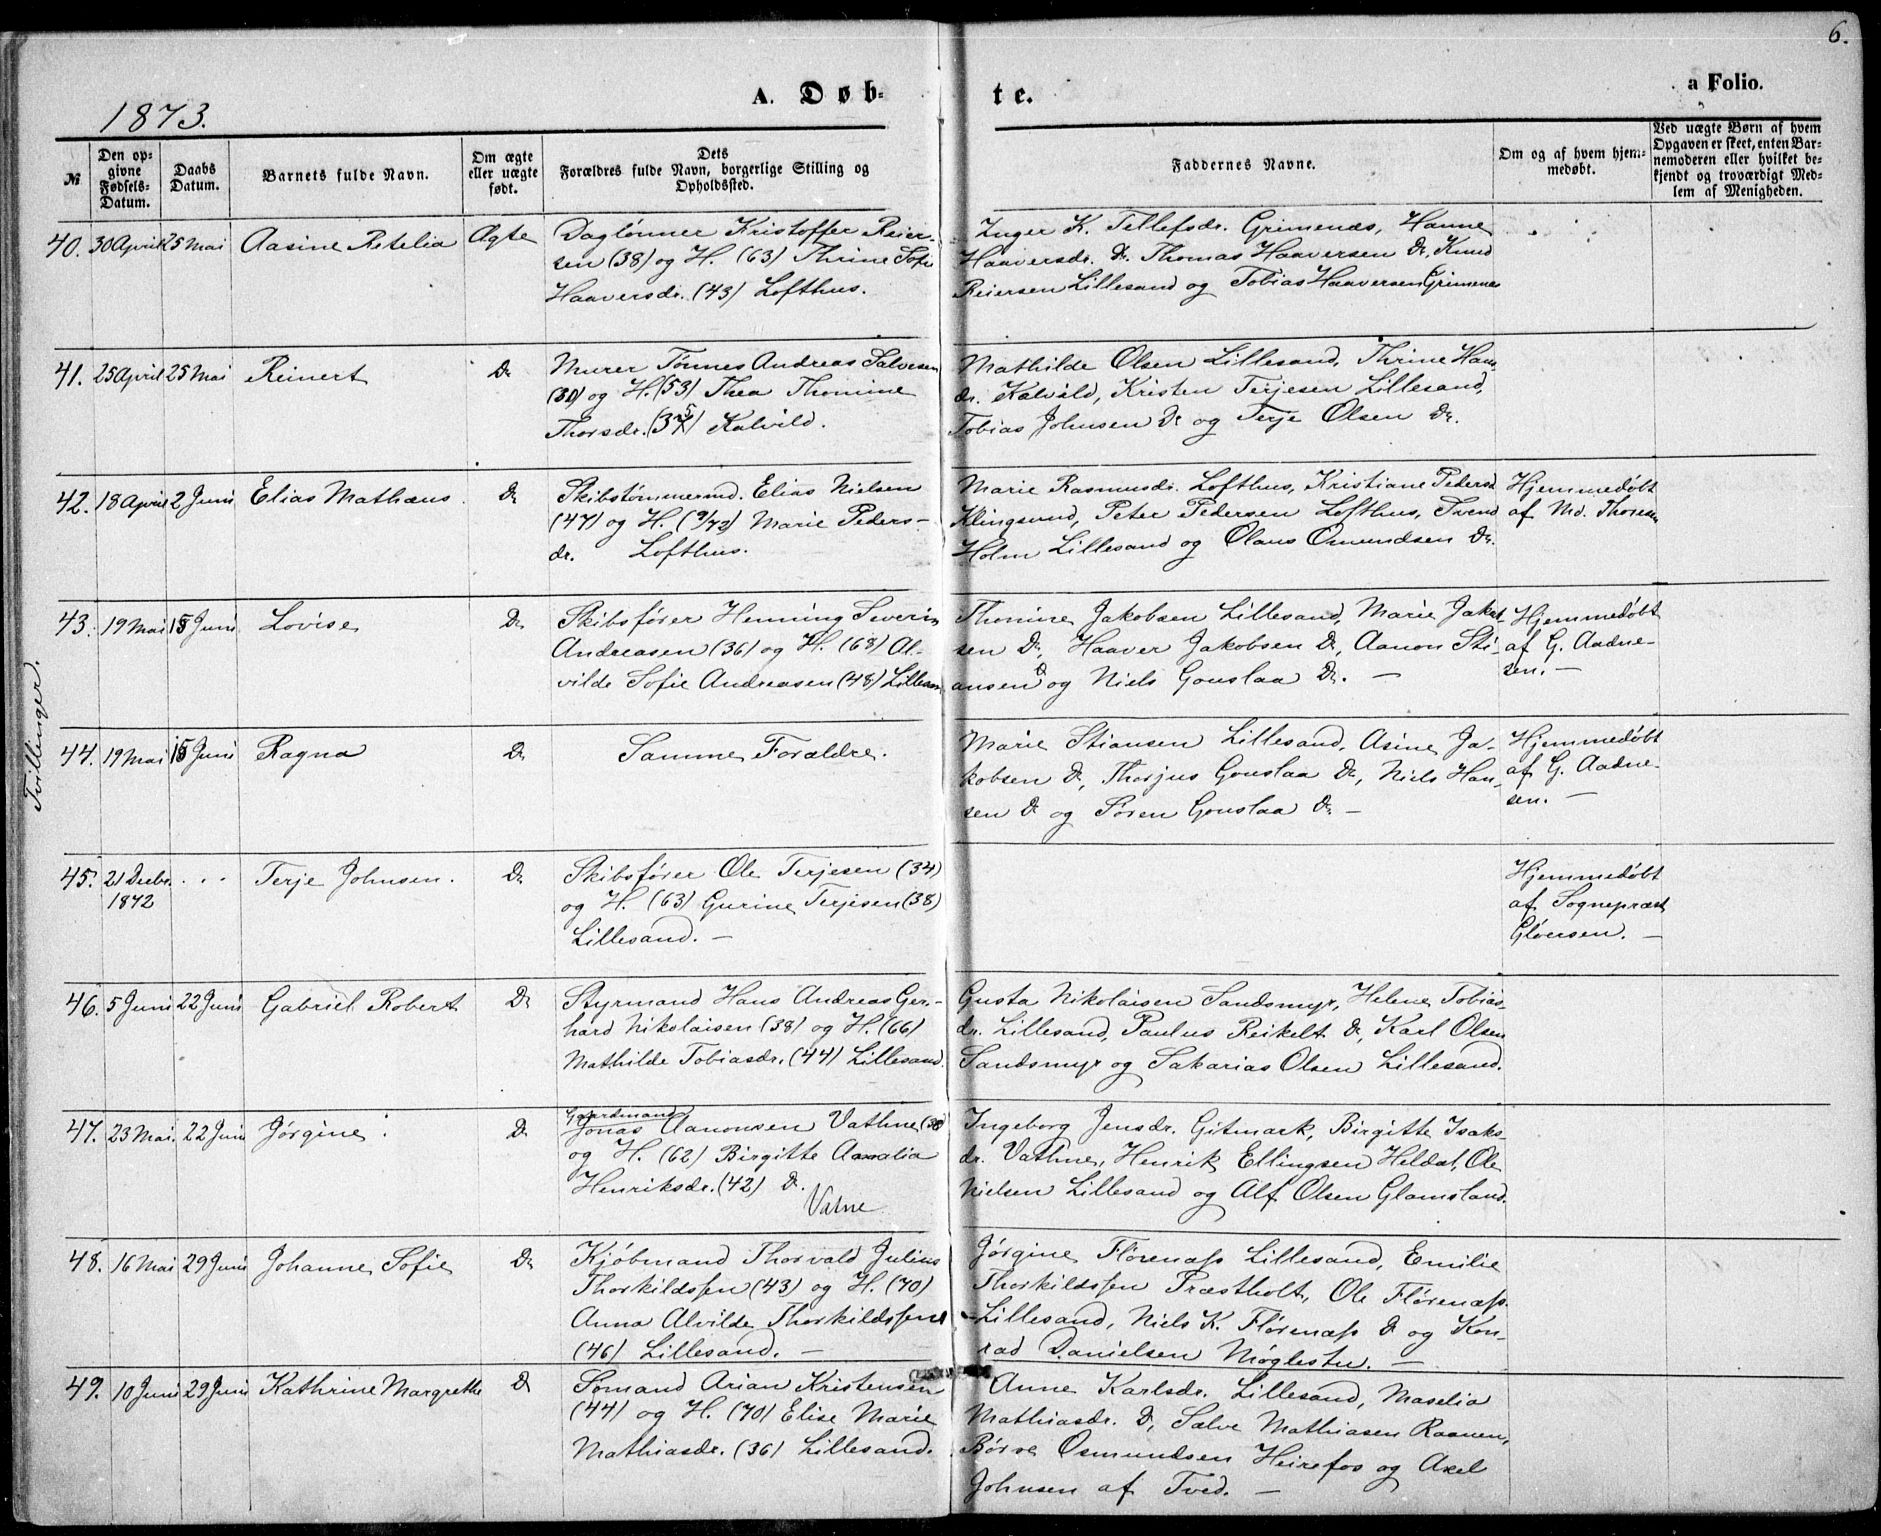 6.
1873.
A. Døb-
te.
a Folio.
№
Den op-
givne
Fødsels-
Datum.
Daabs
Datum.
Barnets fulde Navn.
Om ægte
eller uægte
født.
Dets
Forældres fulde Navn, borgerlige Stilling og
Opholdssted.
Faddernes Navne.
Om og af hvem hjem-
medøbt.
Ved uægte Børn af hvem
Opgaven er skeet, enten Bar-
nemoderen eller hvilket be-
kjendt og troværdigt Med-
lem af Menigheden.
40. 30 April 25 Mai Aasine Retelia Ægte
Daglønner Kristoffer Reier-
sen (38) og H. (63) Thrine Sofie
Haaversdr. (43) Lofthus.
Inger K. Tellefsdr. Grimenæs, Hanne
Haaversdr. Do. Thomas Haaversen Do, Knud
Reiersen Lillesand og Tobias Haaversen Grimenes
41. 25 April 25 Mai Reinert Do
Murer Tønnes Andreas Salvesen
(30) og H. (53) Thea Thomine
Thorsdr. (35) Kalvild.
Mathilde Olsen Lillesand, Thrine Hans-
dr. Kalvild, Kristen Terjesen Lillesand,
Tobias Johnsen Do og Terje Olsen Do.
42. 18 April 2 Juni Elias Mathæus. Do
Skibstømmermd. Elias Nielsen
(47) og H. (9/72) Marie Peders-
dr. Lofthus.
Marie Rasmusdr. Lofthus, Kristiane Pedersd
Klingsund, Peter Pedersen Lofthus, Svend
Holm Lillesand og Olaus Osmundsen Do.
Hjemmedøbt
af Md. Thoresen
Tvillinger.
43. 19 Mai 15 Juni Lovise Do
Skibsfører Henning Severin
Andreasen (36) og H. (68) Al-
vilde Sofie Andreasen (48) Lillesan
Thomine Jakobsen Lillesand, Marie Jakob-
sen Do, Haaver Jakobsen Do, Aanon Sti-
ansen Do og Niels Gouslaa Do. —
Hjemmedøbt
af G. Aadne-
sen. —
44. 19 Mai 15 Juni Ragna Do
Samme Forældre.
Marie Stiansen Lillesand, Asine Ja-
kobsen Do, Thorjus Gouslaa Do, Niels Han-
sen Do og Søren Gouslaa Do —
Hjemmedøbt
af G. Aadne-
sen. —
45. 21 Decbr. 1872 . . . Terje Johnsen. Do
Skibsfører Ole Terjesen (34)
og H. (63) Gurine Terjesen (38)
Lillesand. —
Hjemmedøbt
af Sognepræst
Gløersen. —
46. 5 Juni 22 Juni Gabriel Robert Do
Styrmand Hans Andreas Ger-
hard Nikolaisen (38) og H. (66)
Mathilde Tobiasdr. (44) Lillesand.
Gusta Nikolaisen Sandsmyr, Helene Tobias-
dr. Lillesand, Paulus Reikelt Do, Karl Olsen
Sandsmyr og Sakarias Olsen Lillesand.
47. 23 Mai. 22 Juni Jørgine. Do
Gaardmand
Jonas Aanonsen Vathne (38)
og H. (62) Birgitte Amalia
Henriksdr. (42) Do.
Vatne
Ingeborg Jensdr. Gitmark, Birgitte Isaks-
dr. Vathne, Henrik Ellingsen Heldal, Ole
Nielsen Lillesand og Alf Olsen Glamsland.
48. 16 Mai 29 Juni Johanne Sofie Do
Kjøbmand Thorvald Julius
Thorkildssen (43) og H. (70)
Anna Alvilde Thorkildssen
(46) Lillesand. —
Jørgine Flørenæss Lillesand, Emilie
Thorkildssen Præstholt, Ole Flørenæss
Lillesand, Niels K. Flørenæss Do og Kon-
rad Danielsen Møglestu. —
49. 10 Juni 29 Juni Kathrine Margrethe Do
Sømand Arian Kristensen
(44) og H. (70) Elise Marie
Mathiasdr. (36) Lillesand.
Anne Karlsdr. Lillesand, Maselia
Mathiasdr. Do, Salve Mathiasen Raanen,
Børve Osmundsen Heirefos og Axel
Johnsen af Tved. —